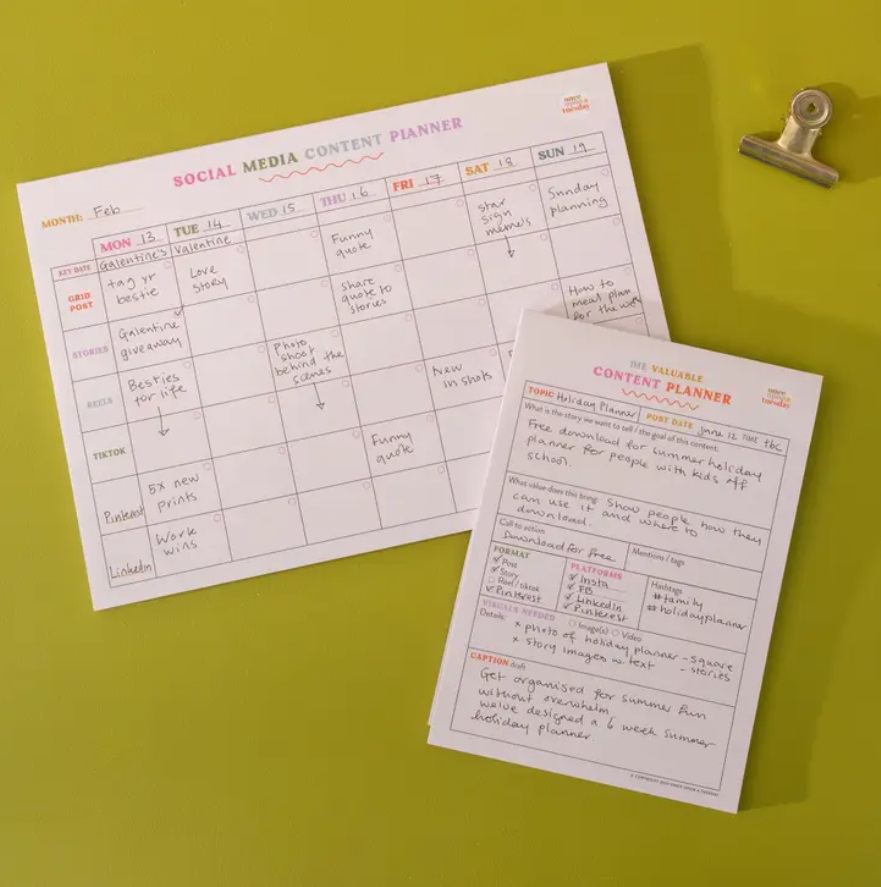 once
upon a
tuesday
SOCIAL MEDIA CONTENT PLANNER
MONTH: Feb
MON 13 TUE 14 WED 15 THU 16 FRI 17 SAT 18 SUN 19
KEY DATE Galentine's Valentine
GRID
POST
tag yr
bestie
Love
story
Funny
quote
star
sign
meme's
Sunday
planning
STORIES
Galentine
giveaway
share
quote to
stories
How to
meal plan
for the
REELS
Besties
for life
Photo
shoot
behind the
scenes
New
in shots
TIKTOK
Funny
quote
Pinterest
5x new
prints
Linkedin
Work
wins
THE VALUABLE
CONTENT PLANNER
once
upon a
tuesday
TOPIC Holiday Planner POST DATE June 12 TIME tbc
What is the story we want to tell / the goal of this content:
Free download for summer holiday
planner for people with kids off
school.
What value does this bring: Show people how they
can use it and where to
download.
Call to action
Download for free
Mentions / tags
FORMAT
Post
Story
Reel / tiktok
Pinterest
PLATFORMS
Insta
FB
LinkedIn
Pinterest
Hashtags
#family
#holidayplanner
VISUALS NEEDED Image(s) Video
Details: x photo of holiday planner - square
x story images w. text - stories
CAPTION draft
Get organised for summer fun
without overwhelm
we've designed a 6 week summer
holiday planner.
© COPYRIGHT 2023 ONCE UPON A TUESDAY